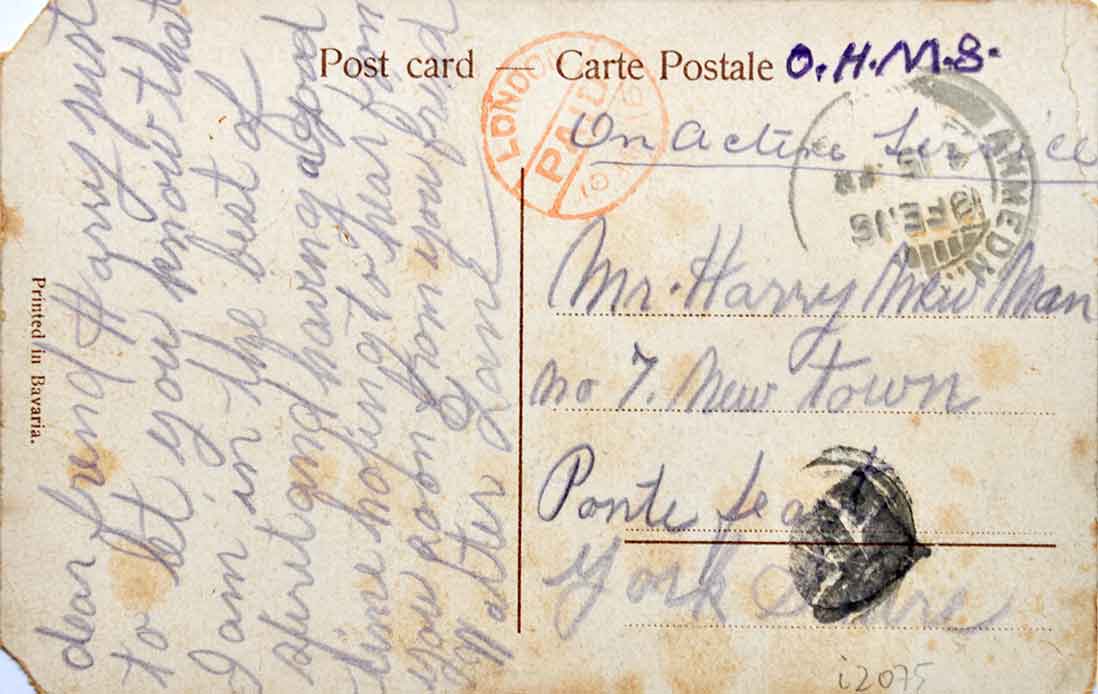 Post card — Carte Postale O.H.M.S.
On Active Service
LONDON
PAID
AHMEDN
19 FE. 16
Mr. Harry New Man
no 7. New Town
Ponte fea
York Shire
dear frend Harry just
to let you know that
I am in the best of
and having a good
time hoping to hear fom
you soon from your frend
Walter Lane
Printed in Bavaria.
i2075